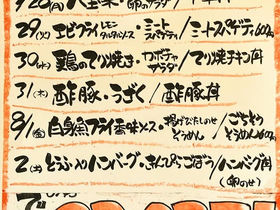 29(火)エビフライレモンタルタルソース・ミートスパゲティ/ミートスパゲティ600円
30(水)鶏のてり焼き・カボチャサラダ/てり焼チキン丼
31(木)酢豚・うざく/酢豚丼
8/1(金)白身魚フライ香味ソース・揚げなすのせそうめん/ごちそうそうめん600円
2(土)とうふ入りハンバーグ・きんぴらごぼう/ハンバーグ丼(卵のせ)